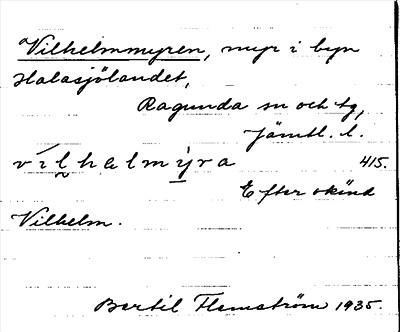 Vilhelmmyren, myr i byn
Halasjölandet,
Ragunda sn och tg,
Jämtl. l.
vílhelmỳra 415.
Efter okänd
Vilhelm.
Bertil Flemström 1935.